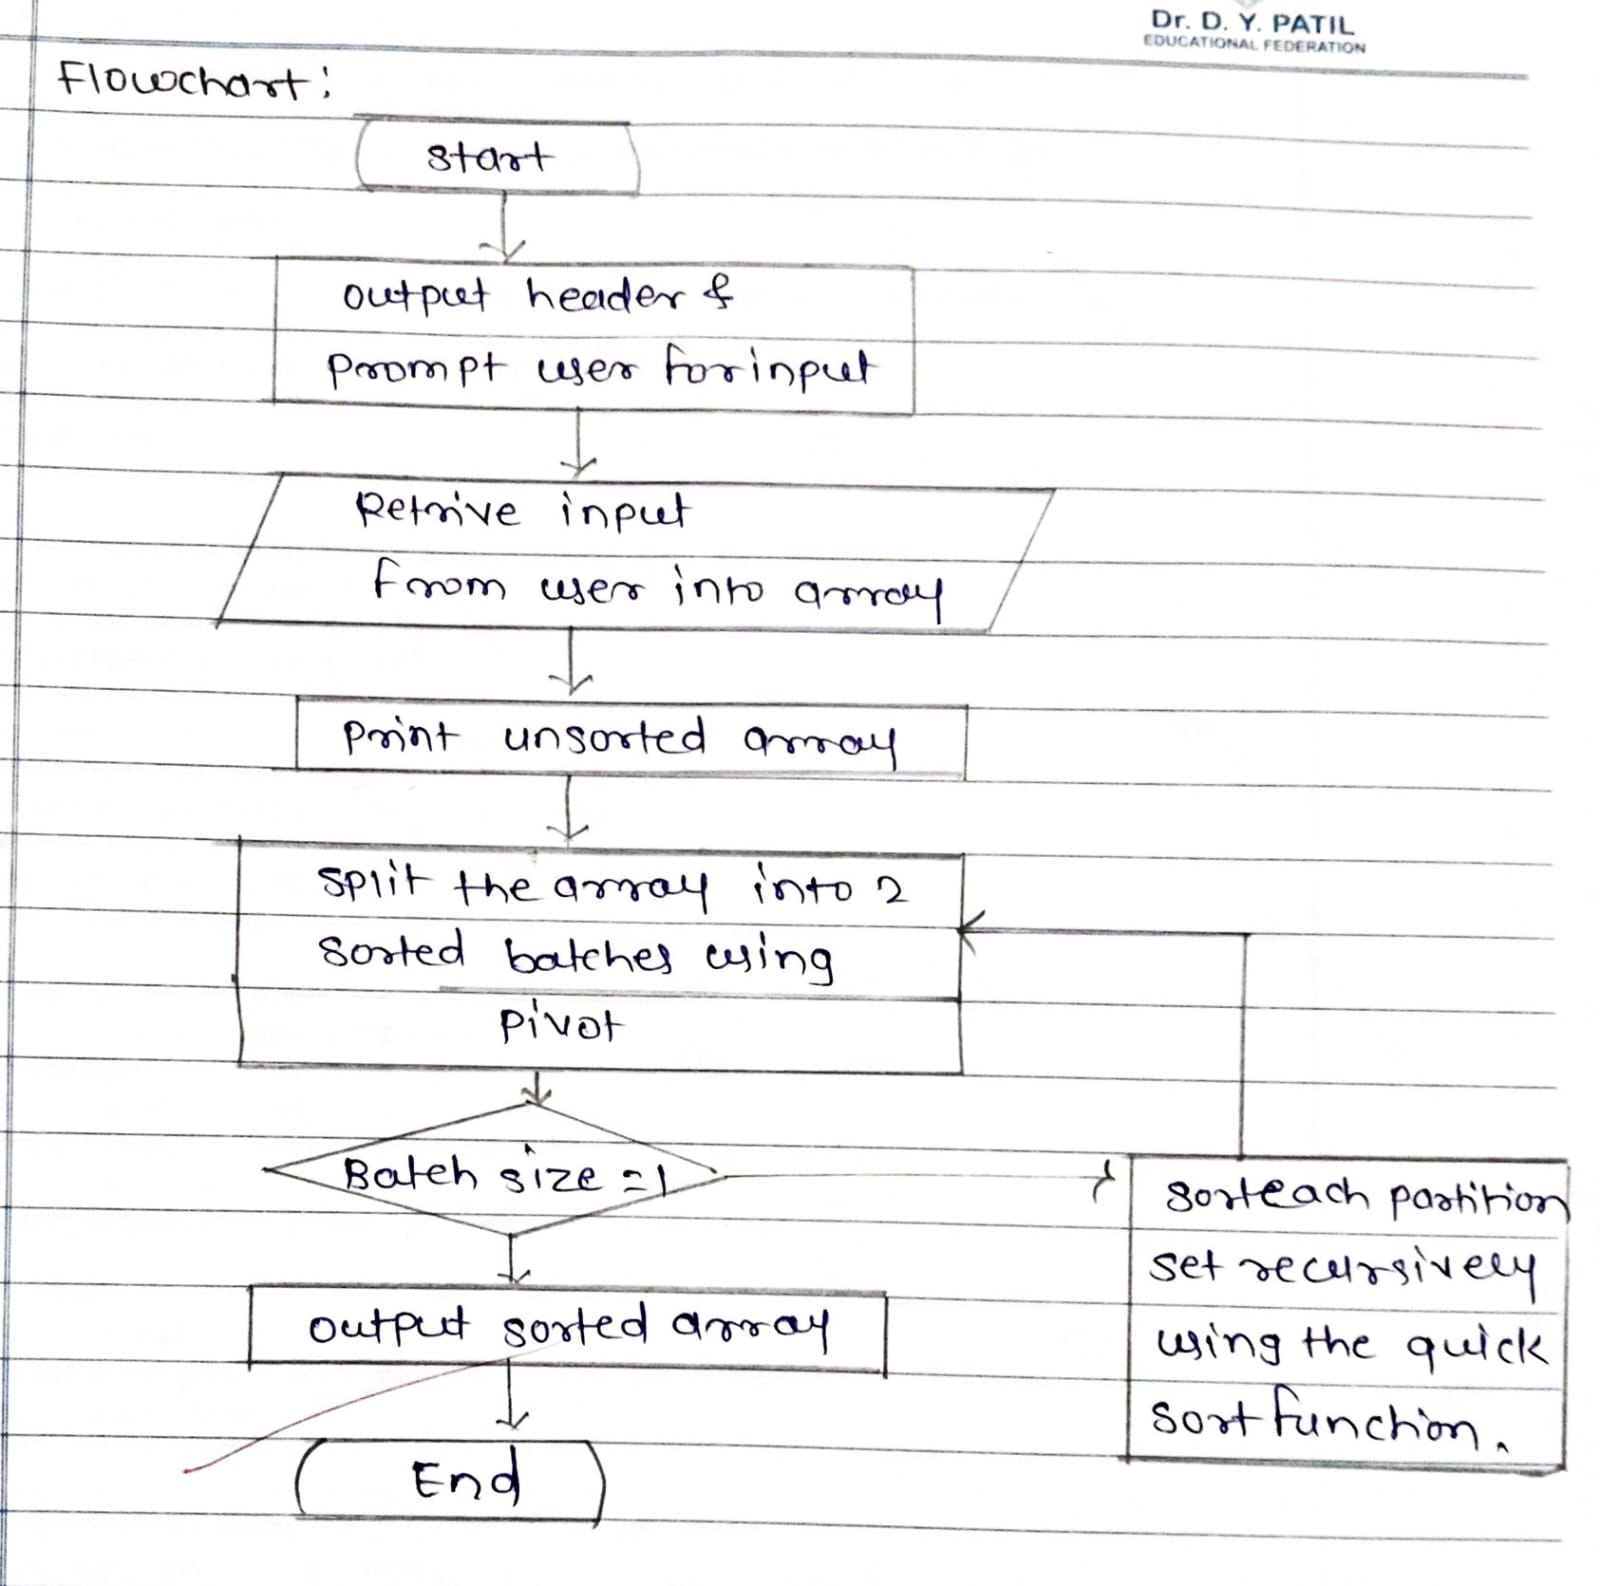 Dr. D. Y. PATIL
EDUCATIONAL FEDERATION
Flowchart:
start
output header &
prompt user for input
Retrive input
from user into array
print unsorted array
split the array into 2
sorted batches using
pivot
Batch size = 1
sort each partition
set recursively
using the quick
sort function.
output sorted array
End